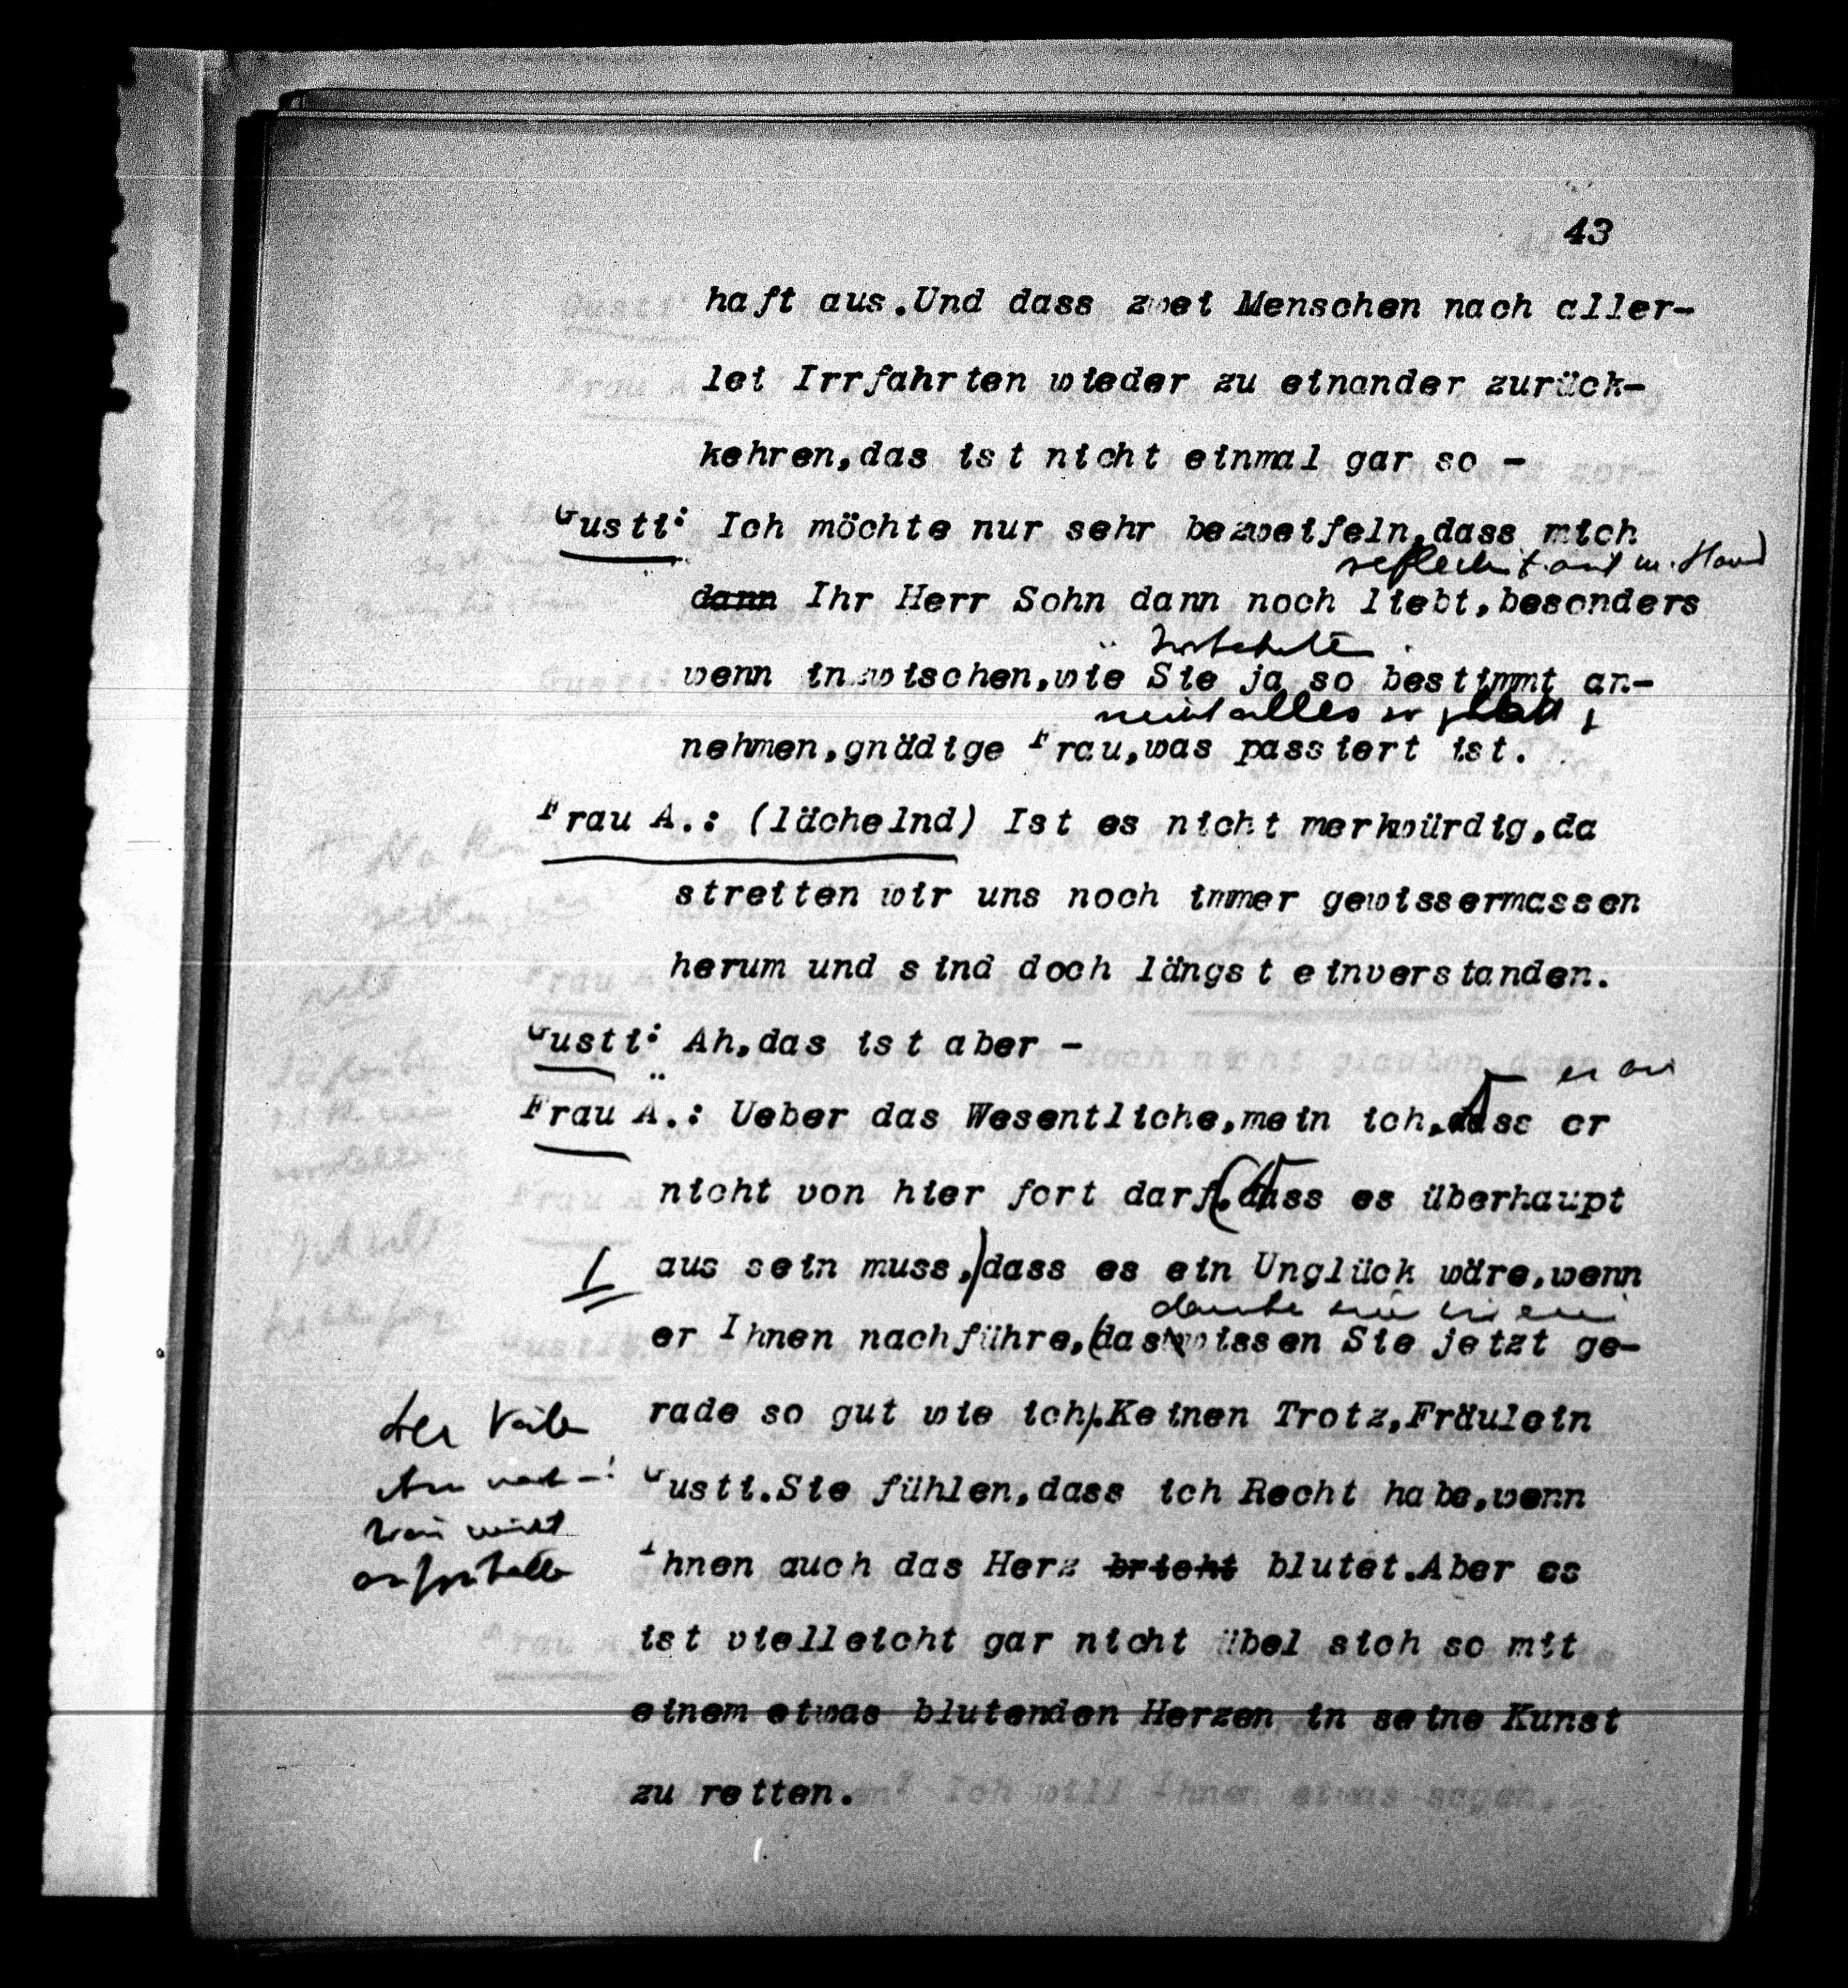 43
haft aus.Und dass zwei Menschen nach aller-
lei Irrfahrten wieder zu einander zurück-
kehren,das ist nicht einmal gar so -
Gusti: Ich möchte nur sehr bezweifeln,dass mich
dann Ihr Herr Sohn dann noch liebt,besonders
wenn inzwischen,wie Sie ja so bestimmt an-
nicht alles so
nehmen,gnädige Frau,was passiert ist.
Frau A.: (lächelnd) Ist es nicht merkwürdig,da
streiten wir uns noch immer gewissermassen
herum und sind doch längst einverstanden.
Gusti: Ah,das ist aber -
Frau A.: Ueber das Wesentliche,mein ich,dass er
nicht von hier fort darf,dass es überhaupt
aus sein muss,dass es ein Unglück wäre,wenn
er Ihnen nachführe,das wissen Sie jetzt ge-
rade so gut wie ich.Keinen Trotz,Fräulein
Gusti.Sie fühlen,dass ich Recht habe,wenn
Ihnen auch das Herz bricht blutet.Aber es
ist vielleicht gar nicht übel sich so mit
einem etwas blutenden Herzen in seine Kunst
zu retten.